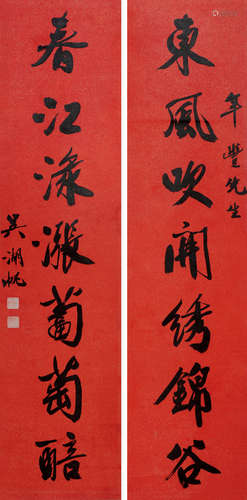 年豐先生
東風吹開綉錦谷
春江渌漲葡萄醅
吳湖帆